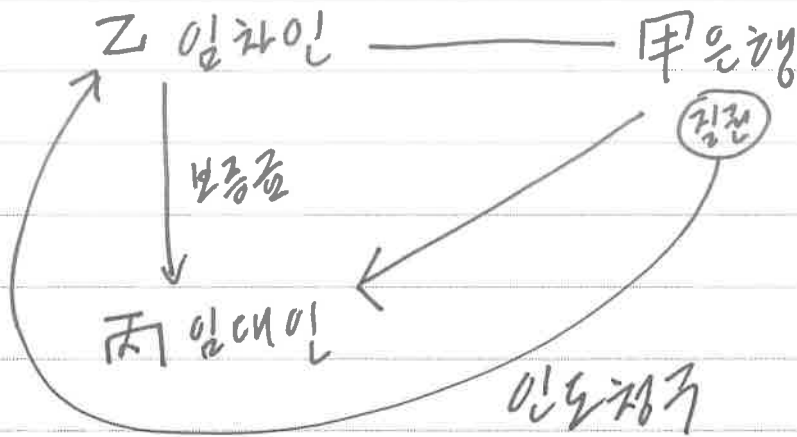 乙 임차인
甲은행
질권
보증금
丙 임대인
인도청구